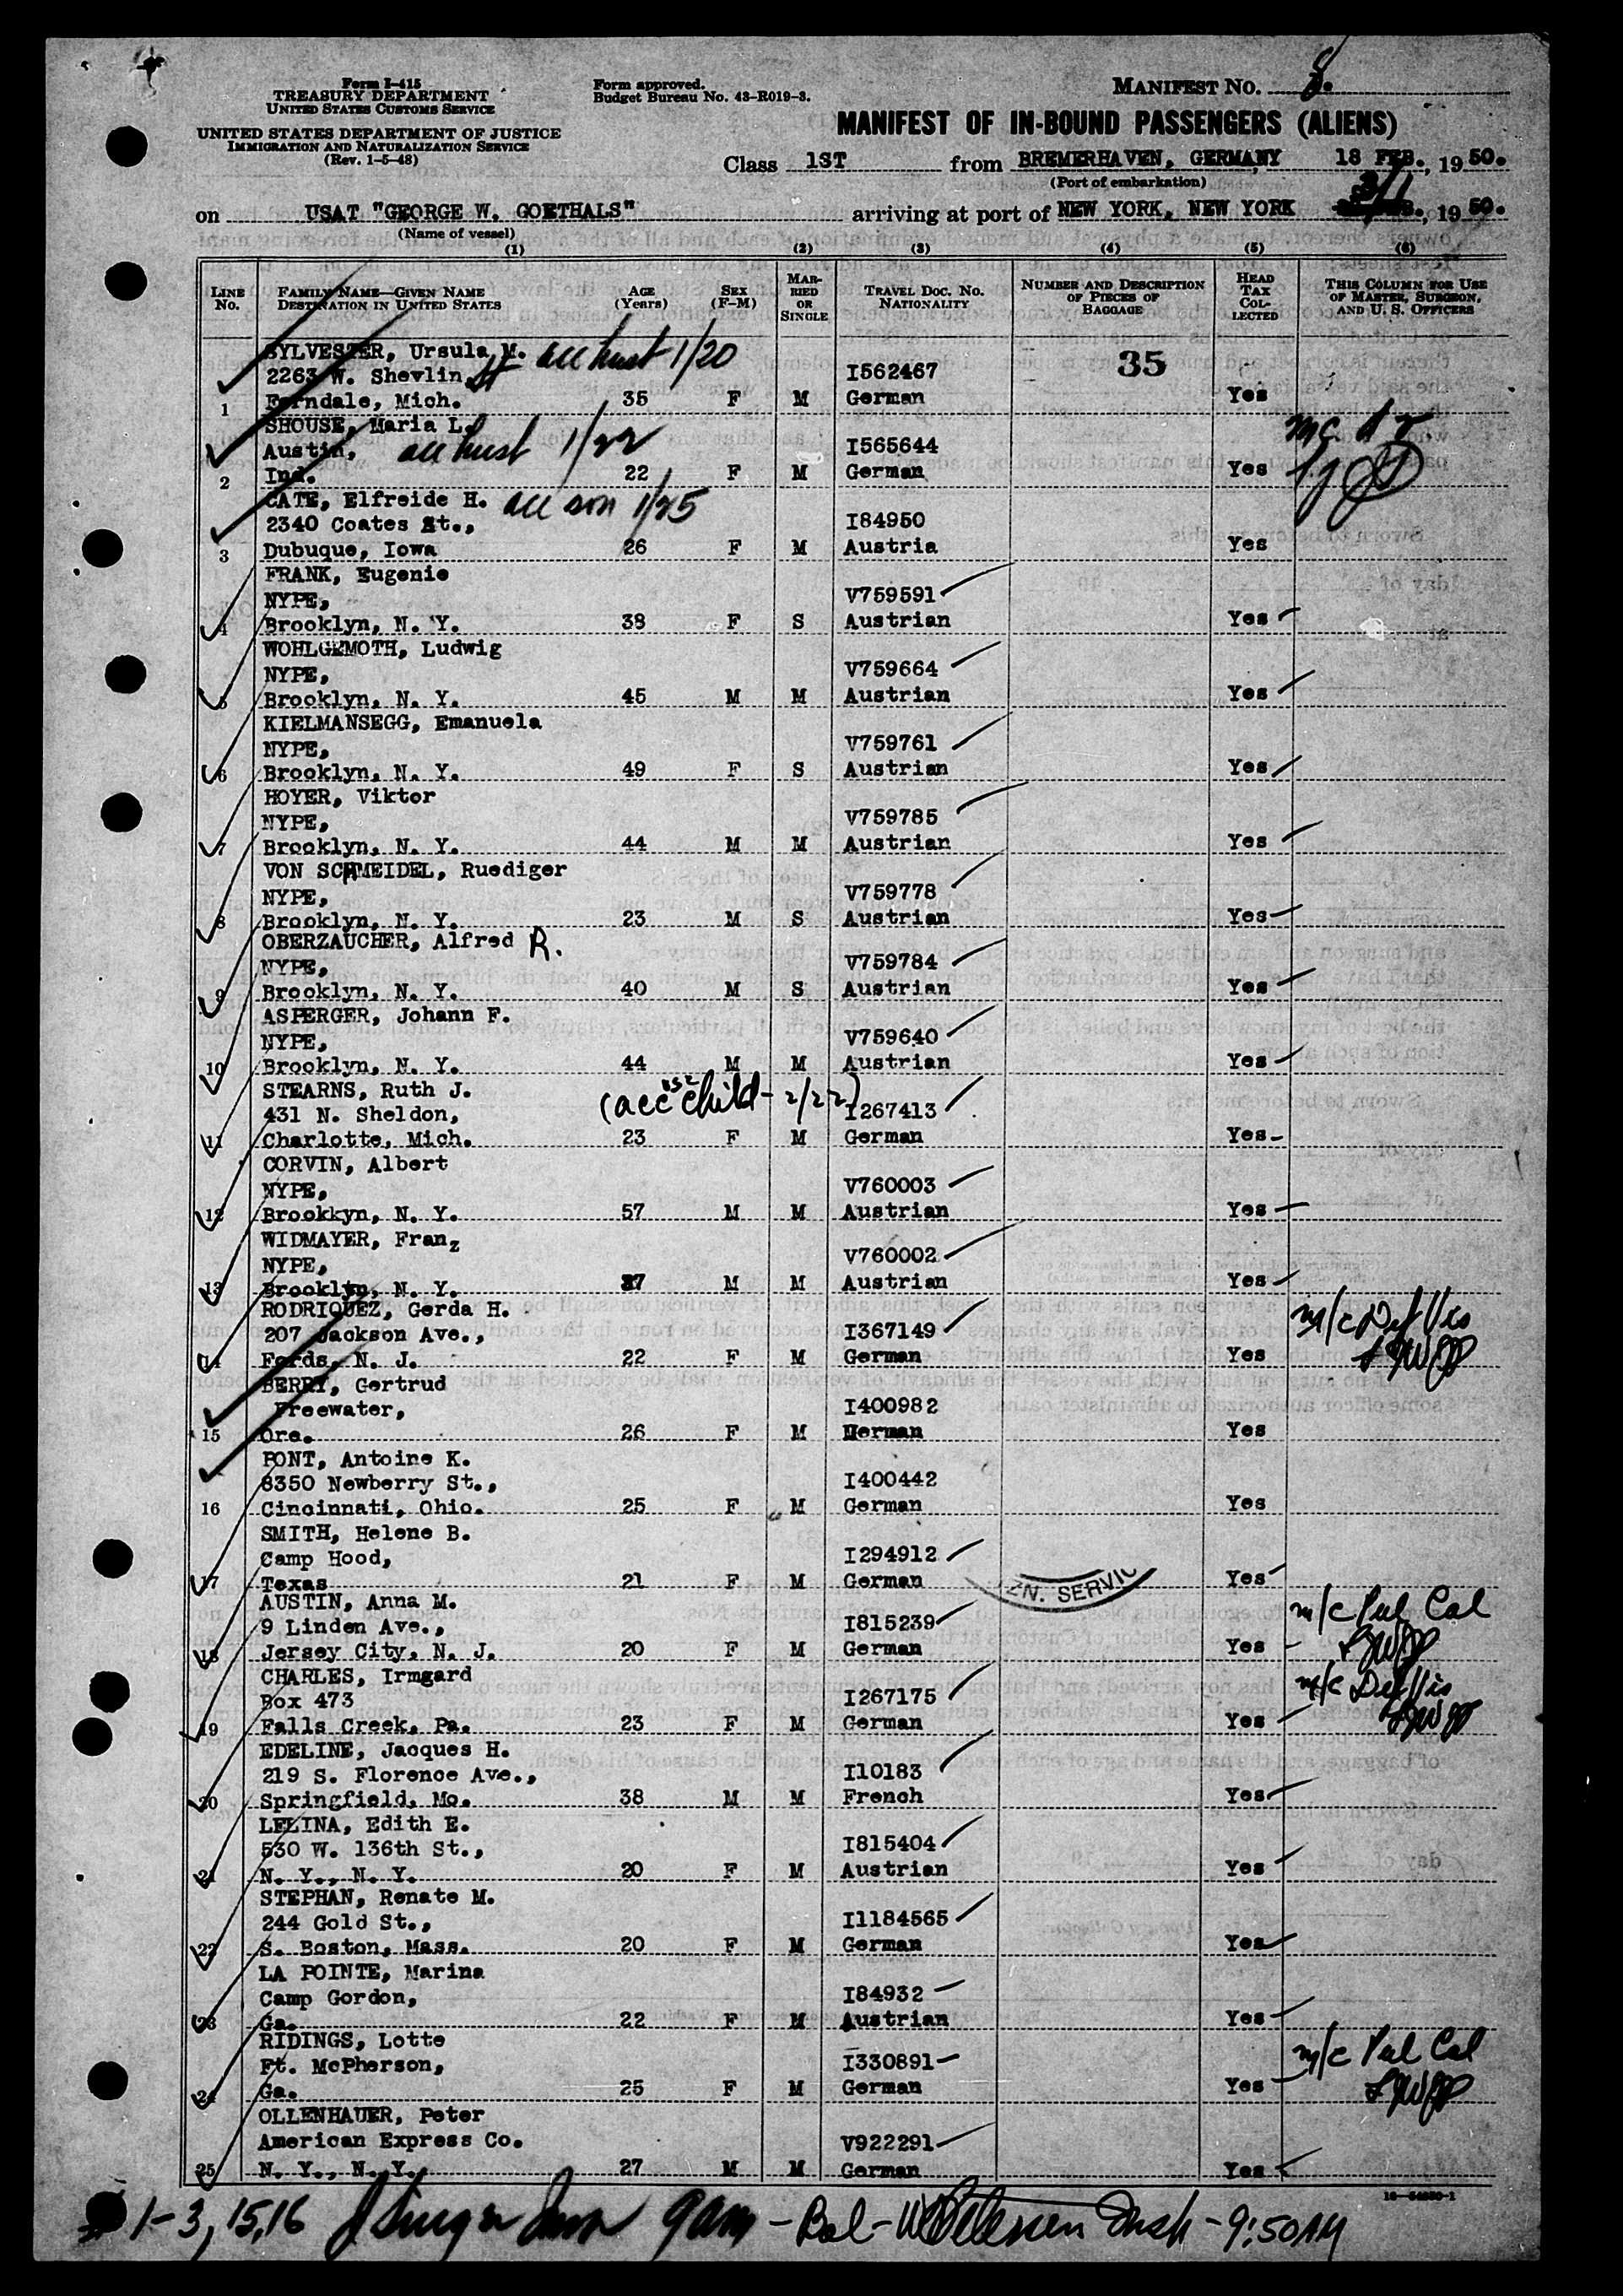 Form I-415
TREASURY DEPARTMENT
UNITED STATES CUSTOMS SERVICE
UNITED STATES DEPARTMENT OF JUSTICE
IMMIGRATION AND NATURALIZATION SERVICE
(Rev. 1-5-48)
Form approved.
Budget Bureau No. 43-R019-3.
MANIFEST NO. 8.
MANIFEST OF IN-BOUND PASSENGERS (ALIENS)
Class 1ST from BREMERHAVEN, GERMANY, 18 FEB., 1950.
(Port of embarkation)
on USAT "GEORGE W. GOETHALS" arriving at port of NEW YORK, NEW YORK 3/1, 1950.
(Name of vessel)
(1) (2) (3) (4) (5) (6)
LINE No. FAMILY NAME—GIVEN NAME DESTINATION IN UNITED STATES AGE (Years) SEX (F-M) MARRIED OR SINGLE TRAVEL DOC. NO. NATIONALITY NUMBER AND DESCRIPTION OF PIECES OF BAGGAGE HEAD TAX COLLECTED THIS COLUMN FOR USE OF MASTER, SURGEON, AND U. S. OFFICERS
SYLVESTER, Ursula M. acc hust 1/20
2263 W. Shevlin St I562467 35
1 Ferndale, Mich. 35 F M German Yes
SHOUSE, Maria L.
Austin, acc hust 1/22 I565644
2 Ind. 22 F M German Yes
CATE, Elfreide H. acc son 1/25
2340 Coates St., I84950
3 Dubuque, Iowa 26 F M Austria Yes
FRANK, Eugenie
NYPE, V759591
4 Brooklyn, N. Y. 38 F S Austrian Yes
WOHLGEMOTH, Ludwig
NYPE, V759664
5 Brooklyn, N. Y. 45 M M Austrian Yes
KIELMANSEGG, Emanuela
NYPE, V759761
6 Brooklyn, N. Y. 49 F S Austrian Yes
HOYER, Viktor
NYPE, V759785
7 Brooklyn, N. Y. 44 M M Austrian Yes
VON SCHMEIDEL, Ruediger
NYPE, V759778
8 Brooklyn, N. Y. 23 M S Austrian Yes
OBERZAUCHER, Alfred R.
NYPE, V759784
9 Brooklyn, N. Y. 40 M S Austrian Yes
ASPERGER, Johann F.
NYPE, V759640
10 Brooklyn, N. Y. 44 M M Austrian Yes
STEARNS, Ruth J. (acc child - 2/22)
431 N. Sheldon, I267413
11 Charlotte, Mich. 23 F M German Yes
CORVIN, Albert
NYPE, V760003
12 Brookkyn, N. Y. 57 M M Austrian Yes
WIDMAYER, Franz
NYPE, V760002
13 Brooklyn, N. Y. 37 M M Austrian Yes
RODRIQUEZ, Gerda H. m/c Def Vis
207 Jackson Ave., I367149
14 Fords, N. J. 22 F M German Yes
BERRY, Gertrud
Freewater, I400982
15 Ore. 26 F M German Yes
PONT, Antoine K.
8350 Newberry St., I400442
16 Cincinnati, Ohio. 25 F M German Yes
SMITH, Helene B.
Camp Hood, I294912
17 Texas 21 F M German ZN. SERVIC Yes
AUSTIN, Anna M. m/c Pul Cal
9 Linden Ave., I815239
18 Jersey City, N. J. 20 F M German Yes
CHARLES, Irmgard m/c Def Vis
Box 473 I267175
19 Falls Creek, Pa. 23 F M German Yes
EDELINE, Jacques H.
219 S. Florence Ave., I10183
20 Springfield, Mo. 38 M M French Yes
LELINA, Edith E.
530 W. 136th St., I815404
21 N. Y., N. Y. 20 F M Austrian Yes
STEPHAN, Renate M.
244 Gold St., I1184565
22 S. Boston, Mass. 20 F M German Yes
LA POINTE, Marina
Camp Gordon, I84932
23 Ga. 22 F M Austrian Yes
RIDINGS, Lotte m/c Pul Cal
Ft. McPherson, I330891
24 Ga. 25 F M German Yes
OLLENHAUER, Peter
American Express Co. V922291
25 N. Y., N. Y. 27 M M German Yes
1-3, 15, 16 9am - Bal - Insp - 9:50AM